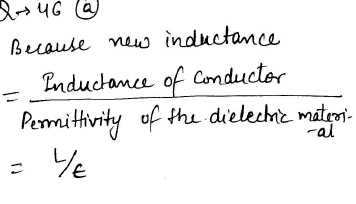 Q→46 (a)
Because new inductance
= Inductance of Conductor
Permittivity of the dielectric materi-
-al
= L/ϵ